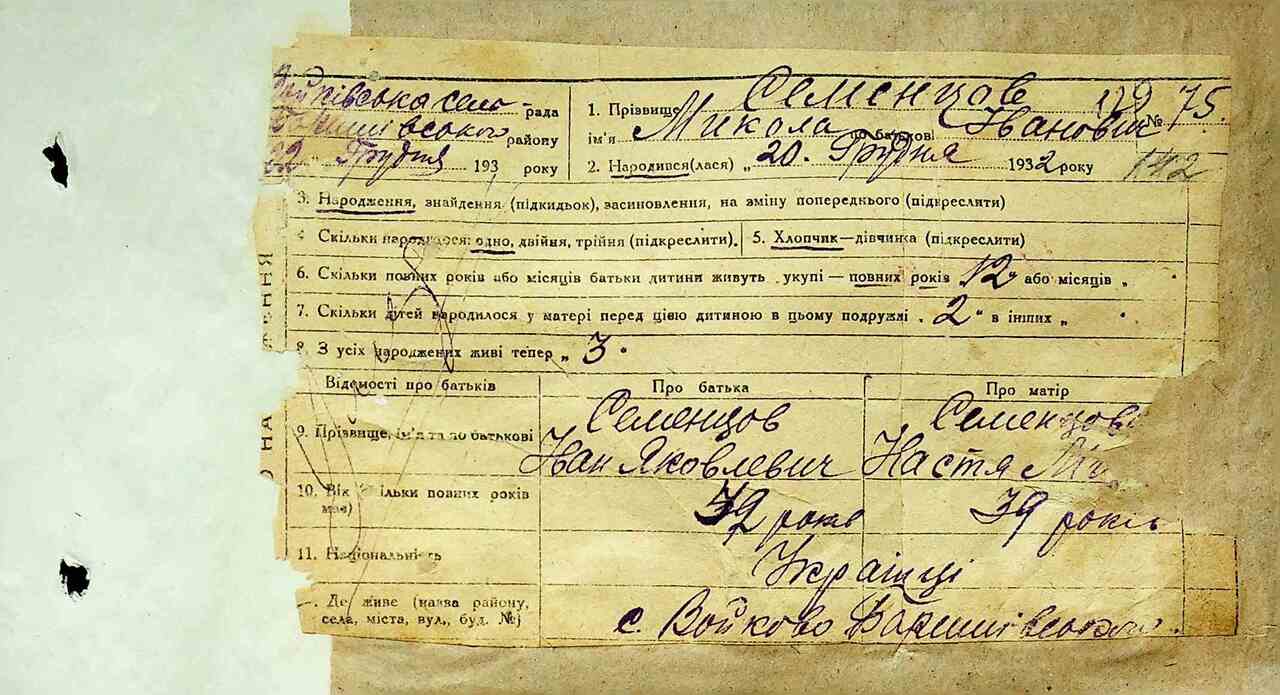 Войківська село рада
Баришівського району
22 „ Грудня 193 року
1. Прізвище Семенцов 129 № 75.
ім'я Микола по батькові Іванович
2. Народився(лася) „ 20. Грудня 1932 року 142
3. Народження, знайдення (підкидьок), засиновлення, на зміну попереднього (підкреслити)
4 Скільки народилося: одно, двійня, трійня (підкреслити).
5. Хлопчик—дівчинка (підкреслити)
6. Скільки повних років або місяців батьки дитини живуть укупі — повних років 12 „ або місяців „
7. Скільки дітей народилося у матері перед цією дитиною в цьому подружжі „ 2 “ в інших „
8. З усіх народжених живі тепер „ 3 .
Відомості про батьків
Про батька
Про матір
9. Прізвище, ім'я та по батькові
Семенцов
Іван Яковлевич
Семенцов
Настя
10. Вік ільки повних років
має)
років
39 років
11. Національність
Українці
Де живе (назва району,
села, міста, вул., буд. №)
с. Войково Баришівського.